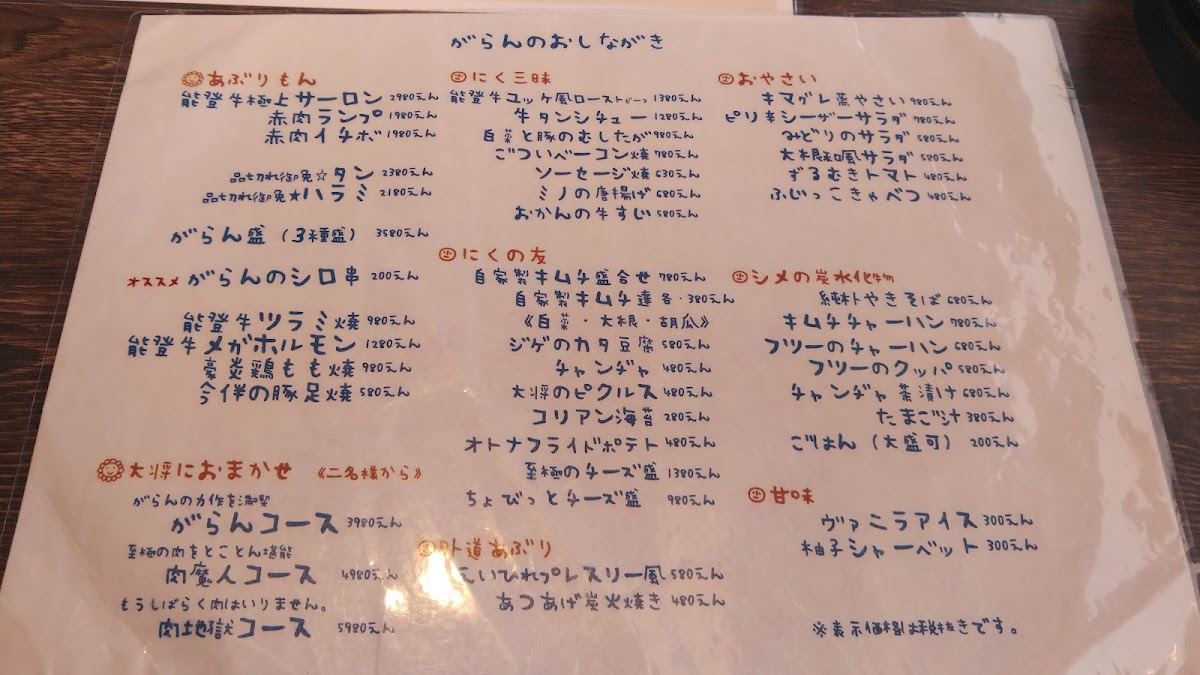 がらんのおしながき
あぶりもん
能登牛極上サーロン 2980えん
赤肉ランプ 1980えん
赤肉イチボ 1980えん
品切れ御免☆タン 2380えん
品切れ御免★ハラミ 2180えん
がらん盛（3種盛） 3580えん
オススメ がらんのシロ串 200えん
能登牛ツラミ焼 980えん
能登牛メガホルモン 1280えん
豪炎鶏もも焼 980えん
今伴の豚足焼 580えん
大将におまかせ 《二名様から》
がらんの力作を満喫
がらんコース 3980えん
至極の肉をとことん堪能
肉魔人コース 4980えん
もうしばらく肉はいりません。
肉地獄コース 5980えん
にく三昧
能登牛ユッケ風ローストビーフ 1380えん
牛タンシチュー 1280えん
白菜と豚のむしたが 980えん
ごついベーコン焼 780えん
ソーセージ焼 630えん
ミノの唐揚げ 680えん
おかんの牛すい 580えん
にくの友
自家製キムチ盛合せ 780えん
自家製キムチ達 各・380えん
《白菜・大根・胡瓜》
ジゲのカタ豆腐 580えん
チャンヂャ 480えん
大将のピクルス 480えん
コリアン海苔 280えん
オトナフライドポテト 480えん
至極のチーズ盛 1380えん
ちょびっとチーズ盛 980えん
外道あぶり
えいひれプレスリー風 580えん
あつあげ炭火焼き 480えん
おやさい
キマグレ蒸やさい 980えん
ピリ辛シーザーサラダ 780えん
みどりのサラダ 580えん
大根和風サラダ 580えん
ずるむきトマト 480えん
ふじっこきゃべつ 480えん
シメの炭水化物
純朴やきそば 680えん
キムチチャーハン 780えん
フツーのチャーハン 680えん
フツーのクッパ 580えん
チャンヂャ茶漬け 680えん
たまご汁 380えん
ごはん（大盛可） 200えん
甘味
ヴァニラアイス 300えん
柚子シャーベット 300えん
※表示価格は税抜きです。